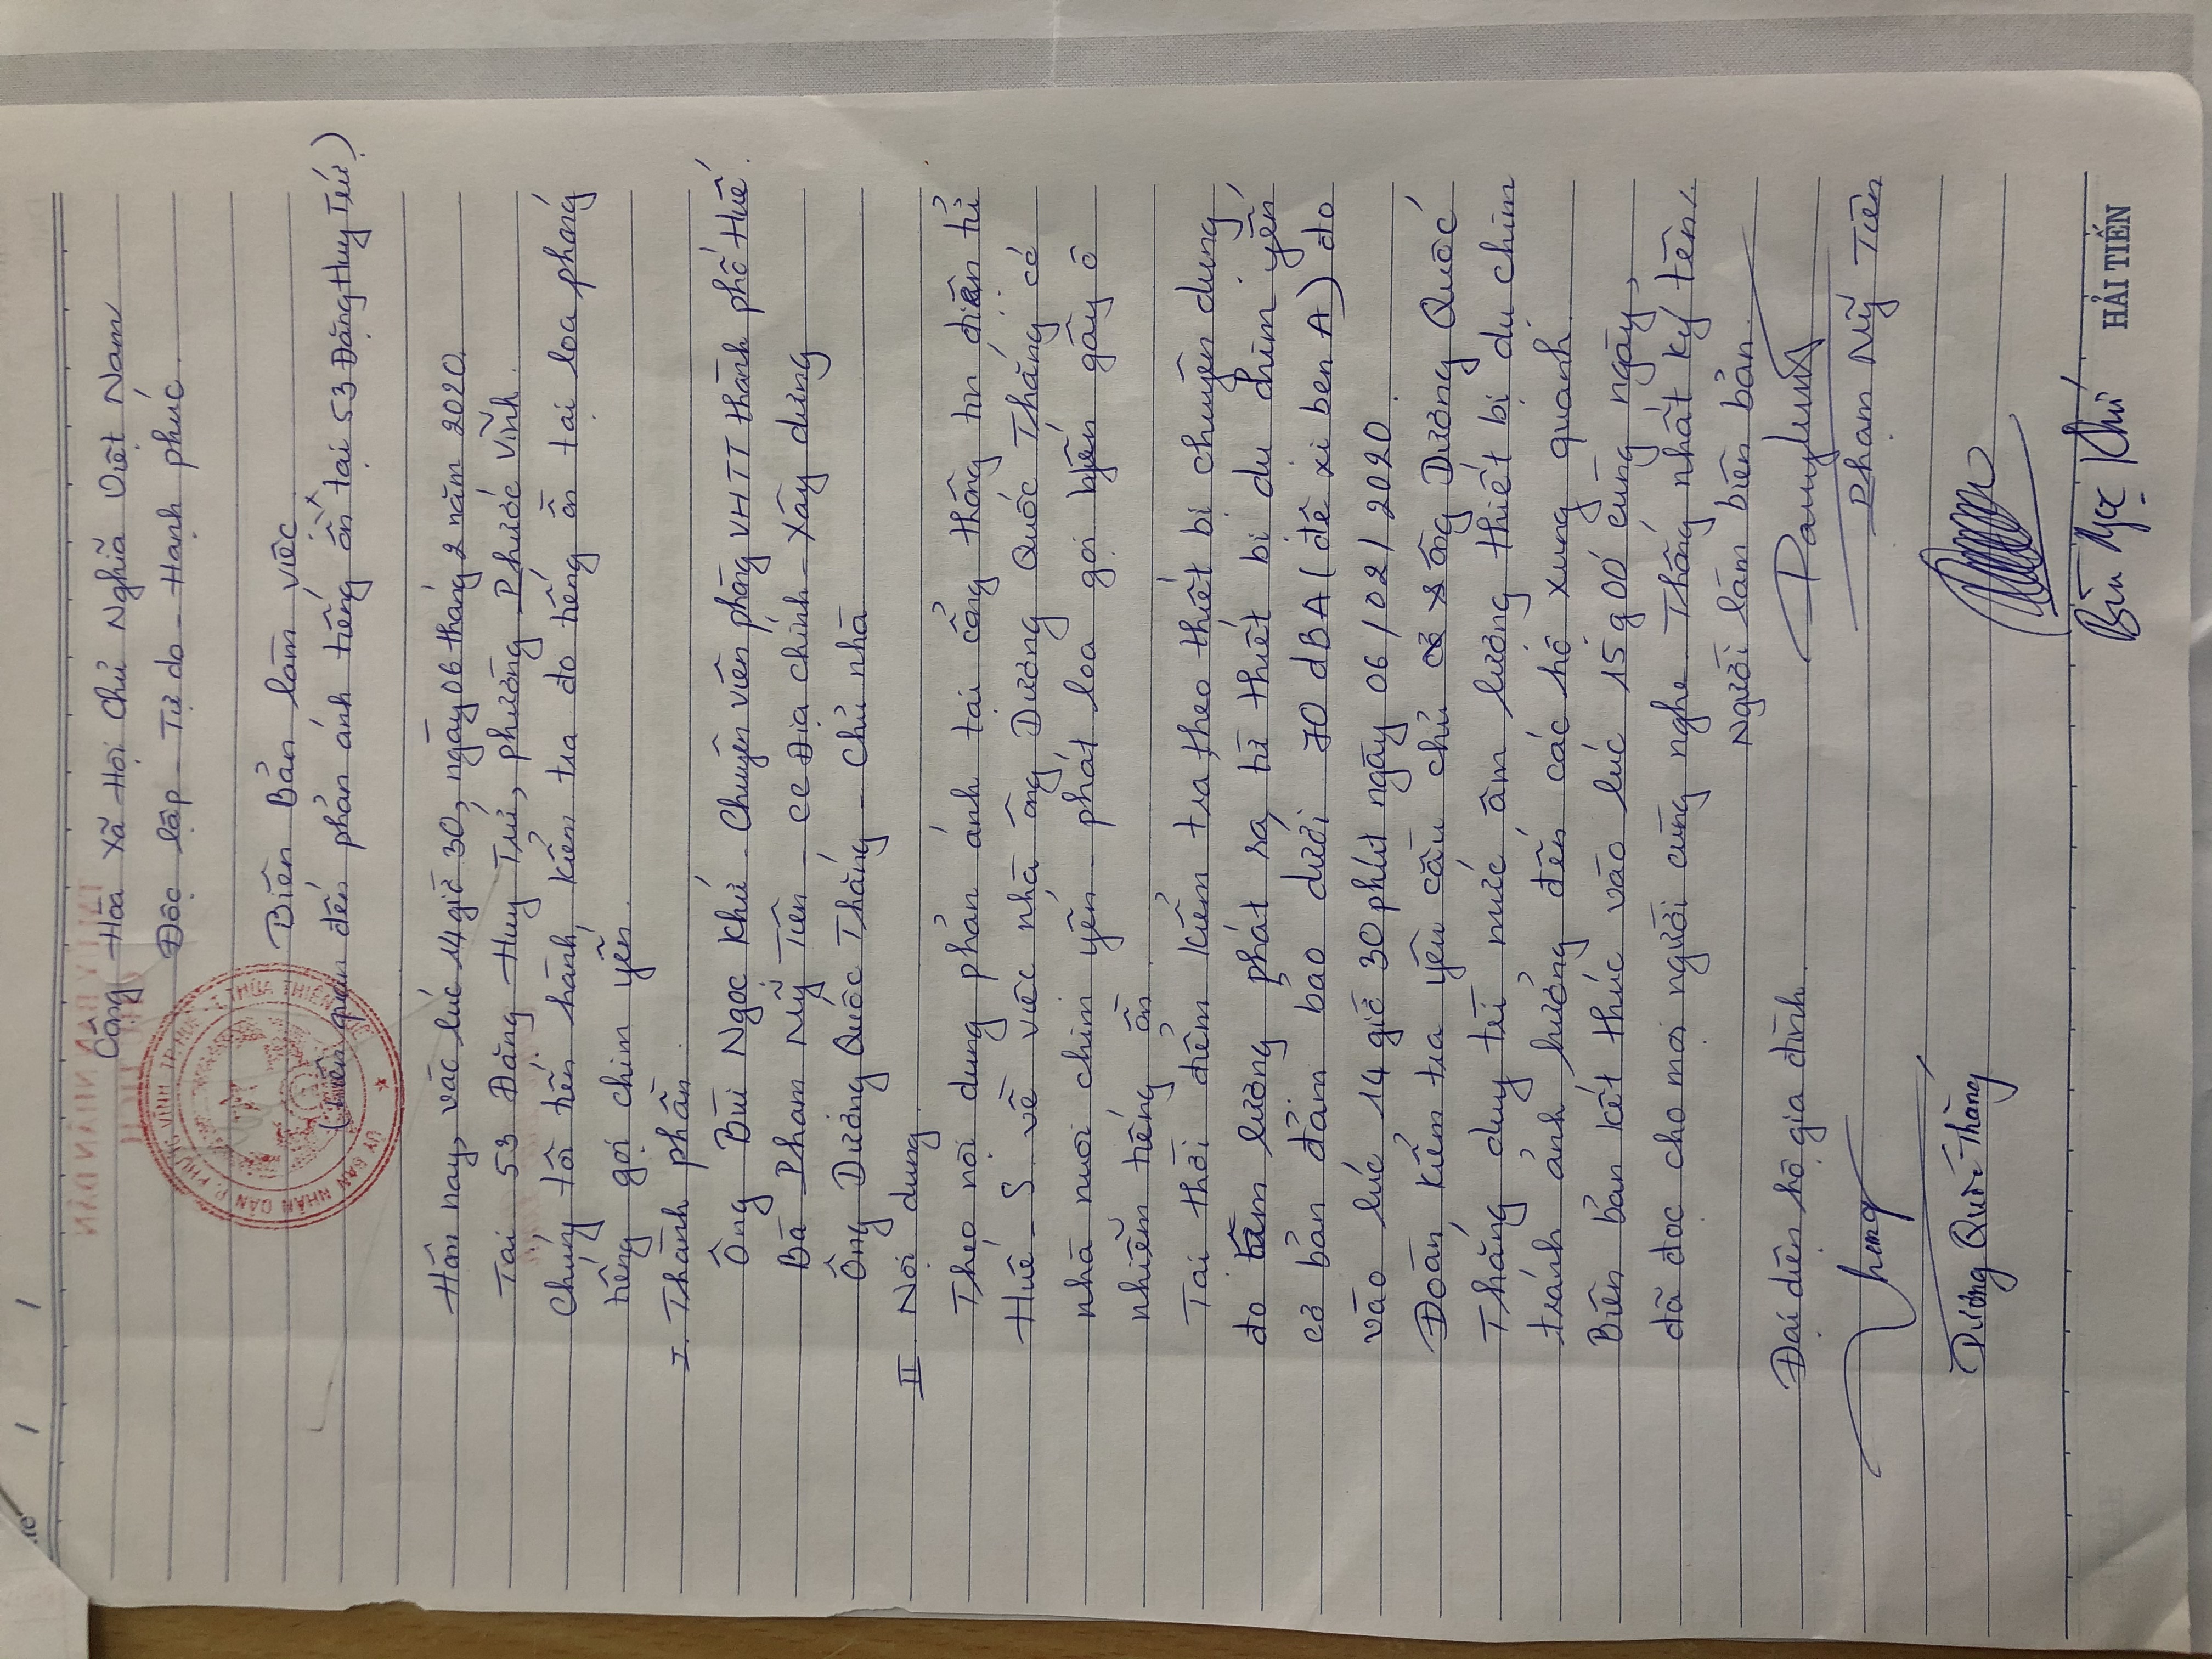 Cộng Hòa Xã Hội Chủ Nghĩa Việt Nam
Độc lập - Tự do - Hạnh phúc
Biên Bản làm việc
(Liên quan đến phản ánh tiếng ồn tại 53 Đặng Huy Trứ)
Hôm nay, vào lúc 14 giờ 30, ngày 06 tháng 2 năm 2020
Tại 53 Đặng Huy Trứ, phường Phước Vĩnh.
Chúng tôi tiến hành kiểm tra đo tiếng ồn tại loa phóng
tiếng gọi chim yến
I. Thành phần
Ông Bùi Ngọc Khứ - Chuyên viên phòng VHTT thành phố Huế.
Bà Phạm Mỹ Tiên - CC Địa chính - Xây dựng
Ông Dương Quốc Thắng - chủ nhà
II Nội dung
Theo nội dung phản ánh tại cổng thông tin điện tử
Huế - S về việc nhà ông Dương Quốc Thắng có
nhà nuôi chim yến - phát loa gọi yến gây ô
nhiễm tiếng ồn.
Tại thời điểm kiểm tra, theo thiết bị chuyên dung
đo lường phát ra từ thiết bị dụ chim yến
cơ bản đảm bảo dưới 70 dBA (đê xi ben A) đo
vào lúc 14 giờ 30 phút ngày 06/02/2020.
Đoàn kiểm tra yêu cầu chủ ông Dương Quốc
Thắng duy trì mức âm lượng thiết bị dụ chim
tránh ảnh hưởng đến các hộ xung quanh.
Biên bản kết thúc vào lúc 15g00 cùng ngày,
đã đọc cho mọi người cùng nghe. Thống nhất ký tên.
Người làm biên bản.
Đại diện hộ gia đình
Phạm Mỹ Tiên
Dương Quốc Thắng
Bùi Ngọc Khứ
HẢI TIẾN